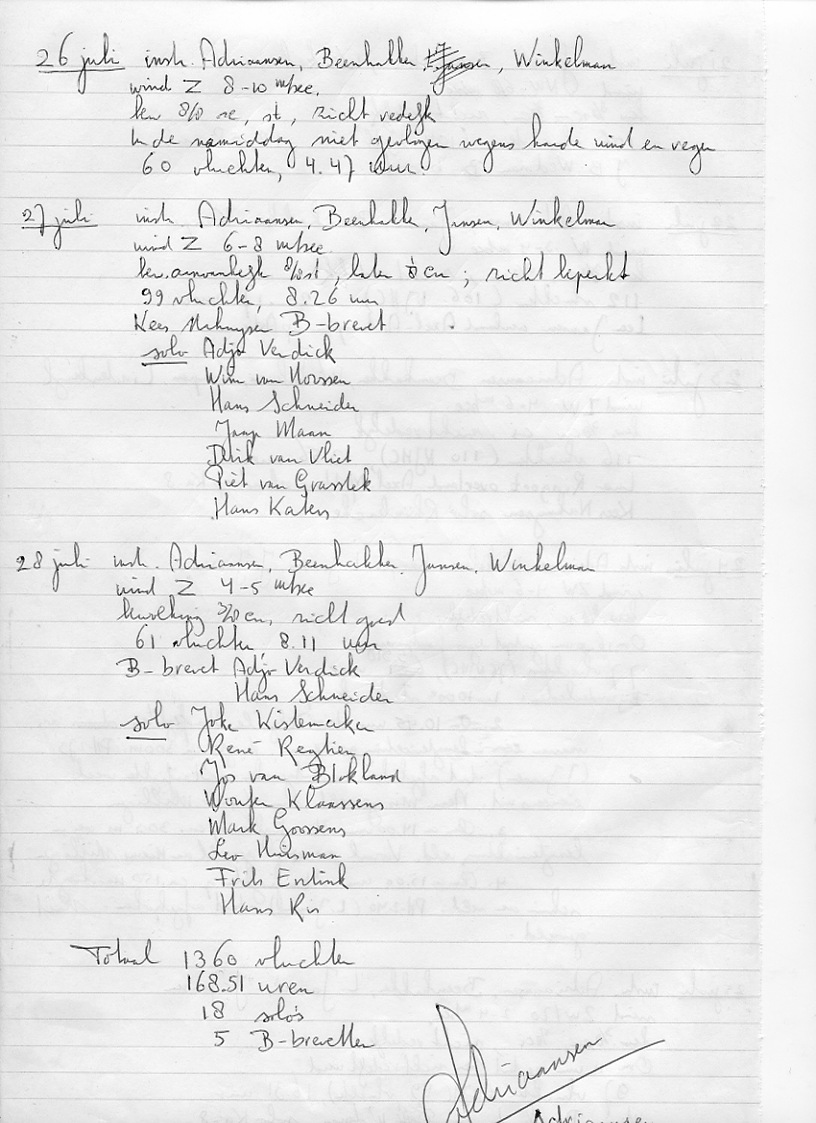 26 juli instr. Adriaansen, Beenhakker, Jansen, Winkelman
wind Z 8-10 m/sec.
bew 8/8 sc, st, zicht redelijk
In de namiddag niet gevlogen wegens harde wind en regen
60 vluchten, 4.47 uur
27 juli instr Adriaansen, Beenhakker, Jansen, Winkelman
wind Z 6-8 m/sec
bew. aanvankelijk 8/8 st, later cu ; zicht beperkt
99 vluchten, 8.26 uur
Kees B-brevet
solo Adjo Verdick
Wim van
Hans Schneider
Jaap Maan
Dirk van Vliet
Piet van
Hans
28 juli instr. Adriaansen, Beenhakker, Jansen, Winkelman
wind Z 4-5 m/sec
bewolking 3/8 cu, zicht goed
61 vluchten, 8.11 uur
B-brevet Adjo Verdick
Hans Schneider
solo Joke Kistemaker
René
Jos van Blokland
Wouter Klaassens
Mark Goossens
Leo Huisman
Frits
Hans
Totaal 1360 vluchten
168.51 uren
18 solo's
5 B-brevetten
Adriaansen
Adriaansen